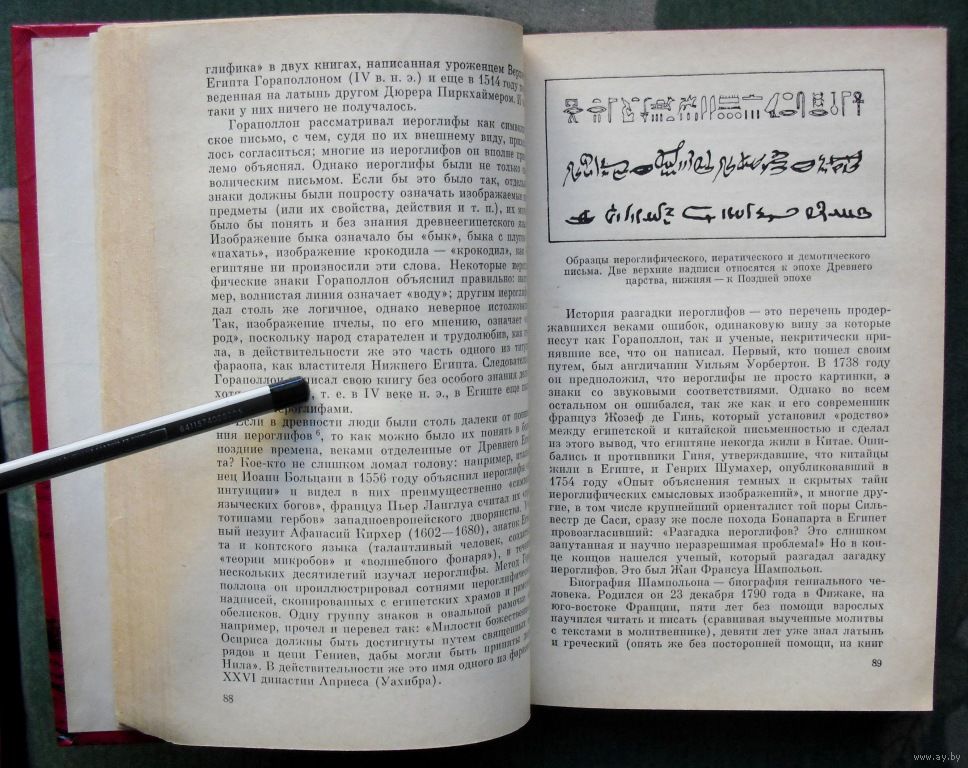 глифика» в двух книгах, написанная уроженцем
Египта Гораполлоном (IV в. н. э.) и еще в 1514 году
веденная на латынь другом Дюрера Пиркхаймером.
таки у них ничего не получалось.
Гораполлон рассматривал иероглифы как
ское письмо, с чем, судя по их внешнему виду,
лось согласиться; многие из иероглифов он вполне
лемо объяснял. Однако иероглифы были не только
волическим письмом. Если бы это было так,
знаки должны были попросту означать изображаемые
предметы (или их свойства, действия и т. п.), их
было бы понять и без знания древнеегипетского
Изображение быка означало бы «бык», быка с
«пахать», изображение крокодила — «крокодил», как
египтяне ни произносили эти слова. Некоторые
фические знаки Гораполлон объяснил правильно:
мер, волнистая линия означает «воду»; другим
дал столь же логичное, однако неверное
Так, изображение пчелы, по его мнению, означает
род», поскольку народ старателен и трудолюбив, как
ла, в действительности же это часть одного из
фараона, как властителя Нижнего Египта.
Гораполлон писал свою книгу без особого знания
хотя , т. е. в IV веке н. э., в Египте еще
иероглифами.
Если в древности люди были столь далеки от
ния иероглифов⁶, то как можно было их понять в
поздние времена, веками отделенные от Древнего
та? Кое-кто не слишком ломал голову: например,
нец Иоанн Больцани в 1556 году объяснил иероглифы
интуиции» и видел в них преимущественно
языческих богов», француз Пьер Ланглуа считал их
тотипами гербов» западноевропейского дворянства.
ный иезуит Афанасий Кирхер (1602—1680), знаток
та и коптского языка (талантливый человек,
«теории микробов» и «волшебного фонаря»), в
нескольких десятилетий изучал иероглифы. Метод
поллона он проиллюстрировал сотнями
надписей, скопированных с египетских храмов и
обелисков. Одну группу знаков в овальной рамочке
например, прочел и перевел так: «Милости
Осириса должны быть достигнуты путем священных
рядов и цепи Гениев, дабы могли быть приняты
Нила». В действительности же это имя одного из
XXVI династии Априеса (Уахибра).
88
Образцы иероглифического, иератического и демотического
письма. Две верхние надписи относятся к эпохе Древнего
царства, нижняя — к Поздней эпохе
История разгадки иероглифов — это перечень продер-
жавшихся веками ошибок, одинаковую вину за которые
несут как Гораполлон, так и ученые, некритически при-
нявшие все, что он написал. Первый, кто пошел своим
путем, был англичанин Уильям Уорбертон. В 1738 году
он предположил, что иероглифы не просто картинки, а
знаки со звуковыми соответствиями. Однако во всем
остальном он ошибался, так же как и его современник
француз Жозеф де Гинь, который установил «родство»
между египетской и китайской письменностью и сделал
из этого вывод, что египтяне некогда жили в Китае. Оши-
бались и противники Гиня, утверждавшие, что китайцы
жили в Египте, и Генрих Шумахер, опубликовавший в
1754 году «Опыт объяснения темных и скрытых тайн
иероглифических смысловых изображений», и многие дру-
гие, в том числе крупнейший ориенталист той поры Силь-
вестр де Саси, сразу же после похода Бонапарта в Египет
провозгласивший: «Разгадка иероглифов? Это слишком
запутанная и научно неразрешимая проблема!» Но в кон-
це концов нашелся ученый, который разгадал загадку
иероглифов. Это был Жан Франсуа Шампольон.
Биография Шампольона — биография гениального че-
ловека. Родился он 23 декабря 1790 года в Фижаке, на
юго-востоке Франции, пяти лет без помощи взрослых
научился читать и писать (сравнивая выученные молитвы
с текстами в молитвеннике), девяти лет уже знал латынь
и греческий (опять же без посторонней помощи, из книг
89
www.ay.by